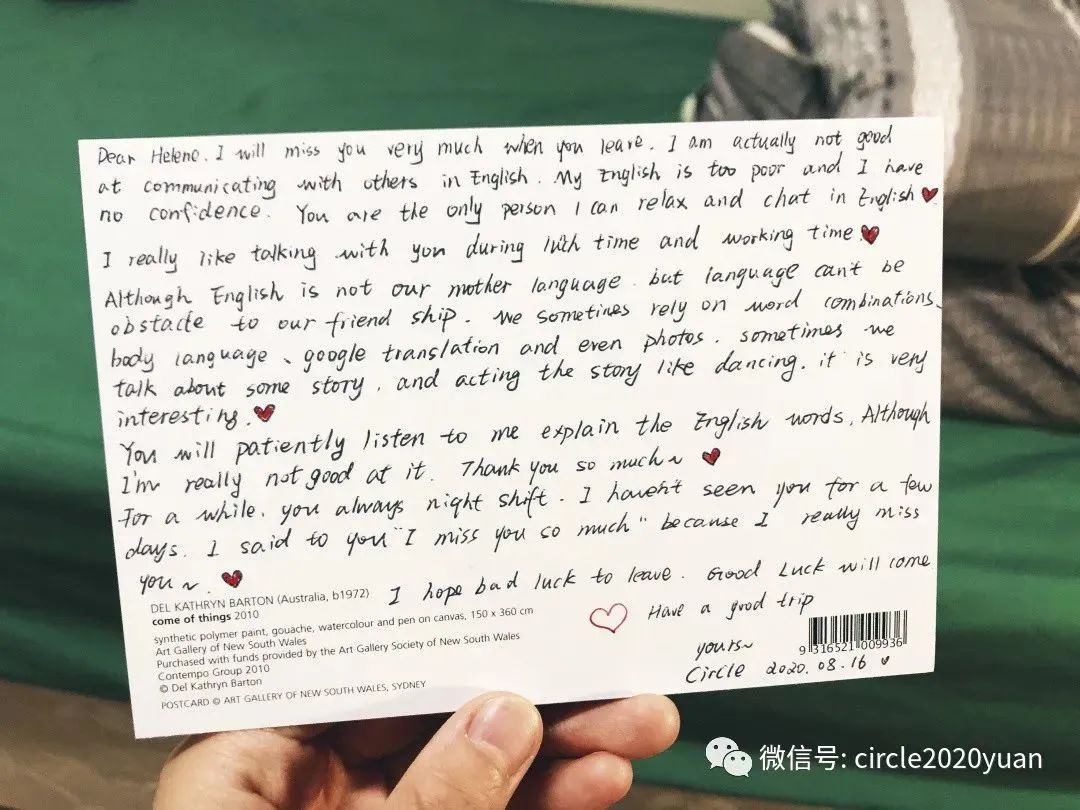 Dear Helene. I will miss you very much when you leave. I am actually not good
at communicating with others in English. My English is too poor and I have
no confidence. You are the only person I can relax and chat in English
I really like talking with you during time and working time.
Although English is not our mother language. but language can't be
obstacle to our friend ship. We sometimes rely on word combinations、
body language、google translation and even photos. sometimes we
talk about some story. and acting the story like dancing. it is very
interesting.
You will patiently listen to me explain the English words. Although
I'm really not good at it. Thank you so much~
For a while. you always night shift. I haven't seen you for a few
days. I said to you "I miss you so much" because I really miss
you~.
I hope bad luck to leave. Good Luck will come
Have a good trip
yours~
Circle 2020.08.16
DEL KATHRYN BARTON (Australia, b1972)
come of things 2010
synthetic polymer paint, gouache, watercolour and pen on canvas, 150 x 360 cm
Art Gallery of New South Wales
Purchased with funds provided by the Art Gallery Society of New South Wales
Contempo Group 2010
© Del Kathryn Barton
POSTCARD © ART GALLERY OF NEW SOUTH WALES, SYDNEY
9 316521 009936
微信号: circle2020yuan